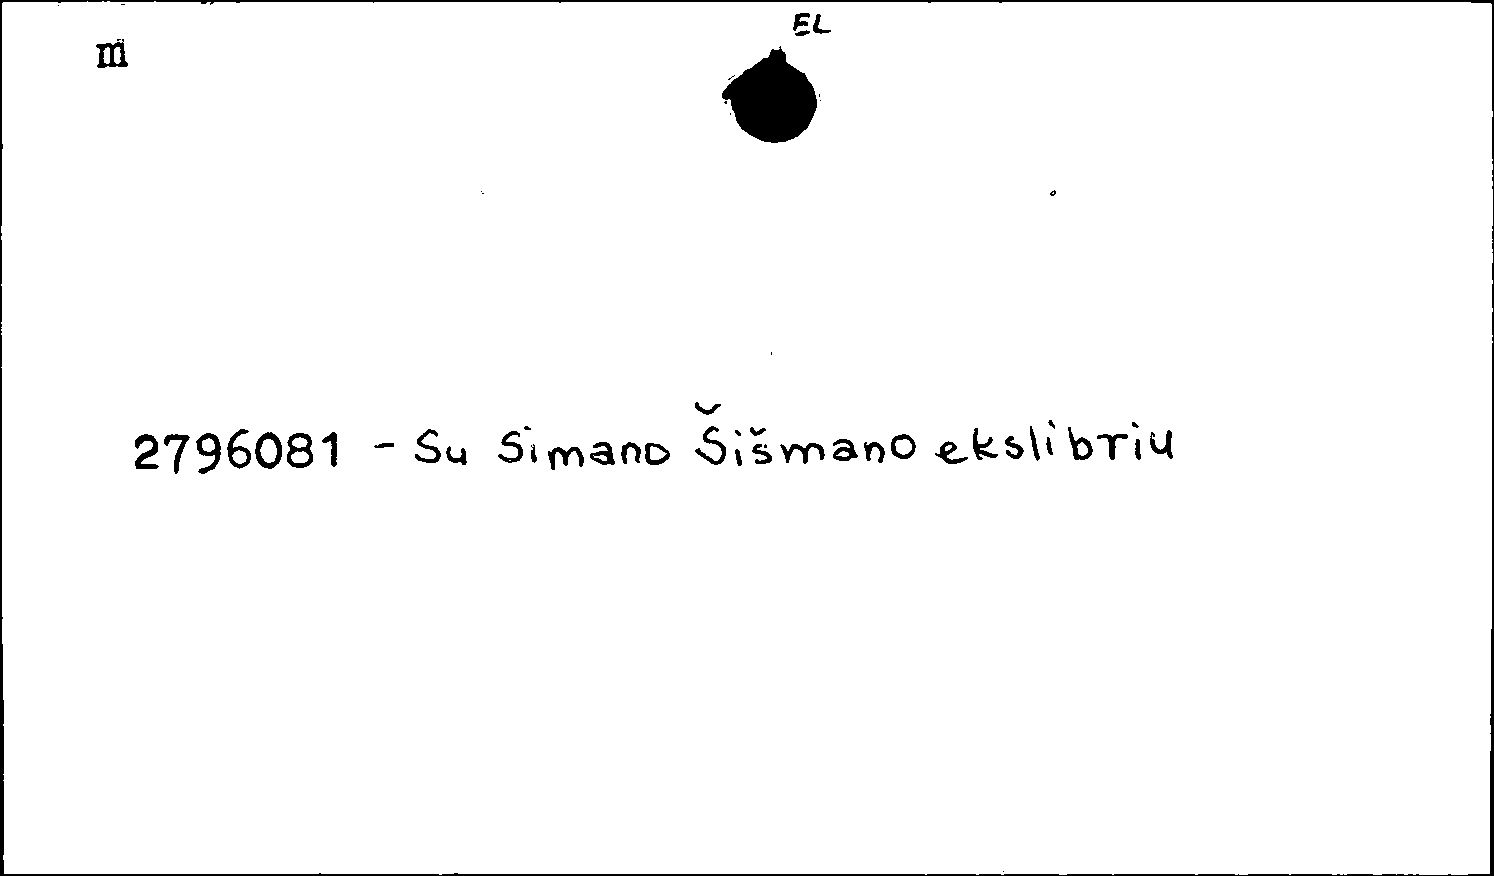 EL
m
2796081 - Su Simano Šišmano ekslibriu